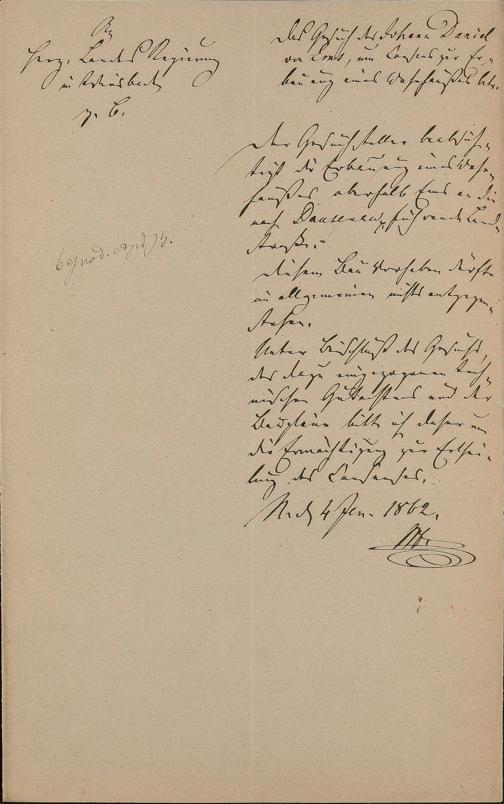 An
Herz. Landes Regierung
in Wiesbaden
z. B.
Das Gesuch des Johann Daniel
von Ems, um Consens zur Er-
bauung eines Wohnhauses betr.
Der Gesuchsteller beabsich-
tigt die Erbauung eines Wohn-
hauses oberhalb Ems an der
nach Dausenau führenden Land
straße.
Diesem Bau Vorhaben dürfte
im allgemeinen nichts entgegen
stehen.
Unter Beischluß des Gesuchs,
des dazu eingezogenen Tech-
nischen Gutachtens und der
Baupläne bitte ich daher um
die Ermächtigung zur Erthei-
lung des Consenses.
4 Jan. 1862.